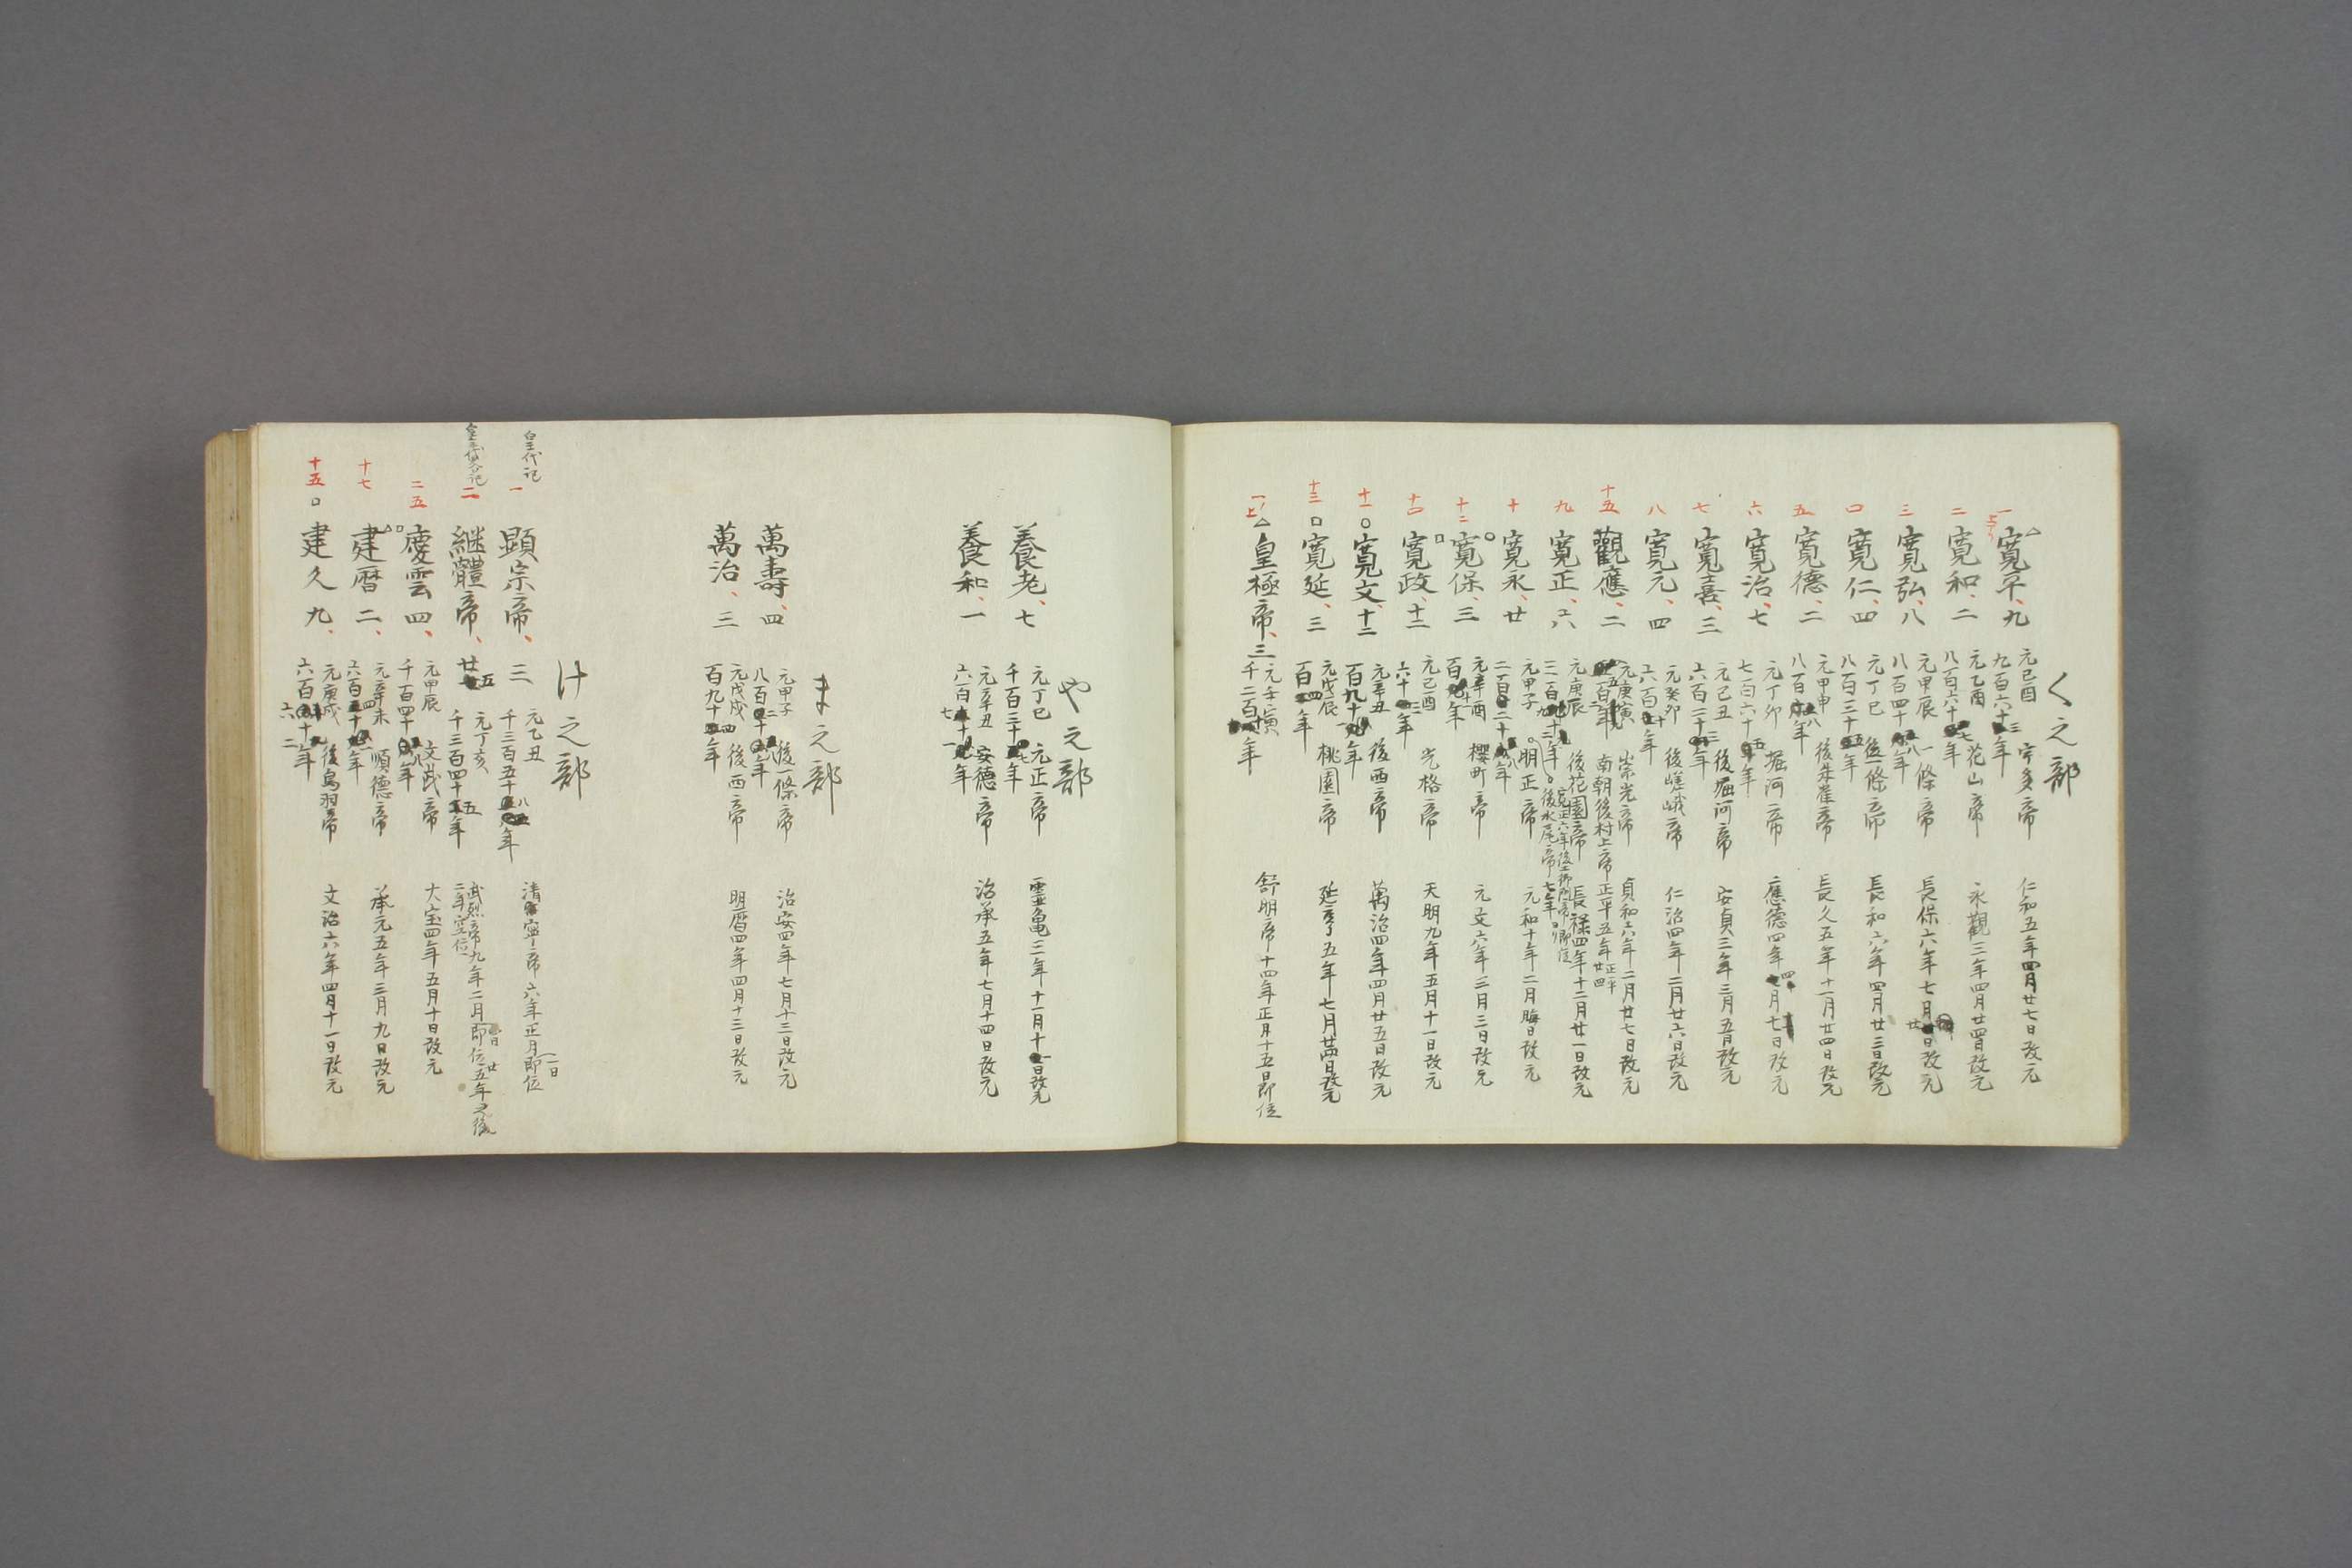 く之部
一
寛平、九 元己酉 宇多帝 仁和五年四月廿七日改元
九百六十三年
二
寛和、二 元乙酉 花山帝 永觀三年四月廿四日改元
八百六十七年
三
寛弘、八 元甲辰 一條帝 長保六年七月廿日改元
八百四十八年
四
寛仁、四 元丁巳 後一條帝 長和六年四月廿三日改元
八百三十五年
五
寛德、二 元甲申 後朱雀帝 長久五年十一月廿四日改元
八百八年
六
寛治、七 元丁卯 堀河帝 應德四年四月七日改元
七百六十五年
七
寛喜、三 元己丑 後堀河帝 安貞三年三月五日改元
六百二十三年
八
寛元、四 元癸卯 後嵯峨帝 仁治四年二月廿六日改元
六百十年
十五
觀應、二 元庚寅 崇光帝 貞和六年二月廿七日改元
南朝後村上帝正平五年
九
寛正、六 元庚辰 後花園帝 長禄四年十二月廿一日改元
寛正六年後土御門帝即位
十
寛永、廿 元甲子 明正帝 元和十年二月晦日改元
後水尾帝七年
十二
寛保、三 元辛酉 櫻町帝 元文六年二月三日改元
十四
寛政、十二 元己酉 光格帝 天明九年五月十一日改元
六十三年
十一
寛文、十二 元辛丑 後西帝 萬治四年四月廿五日改元
百九十一年
十三
寛延、三 元戊辰 桃園帝 延享五年七月廿四日改元
百四年
一上
皇極帝、三 元壬寅 舒明帝十四年正月十五日即位
千二百十年
や之部
養老、七 元丁巳 元正帝 靈亀三年十一月十七日改元
千百三十五年
養和、一 元辛丑 安德帝 治承五年七月十四日改元
六百七十一年
ま之部
萬壽、四 元甲子 後一條帝 治安四年七月十三日改元
萬治、三 元戊戌 後西帝 明暦四年四月十三日改元
百九十四年
け之部
皇代記
一
顕宗帝、三 元乙丑 清寧帝六年正月一日即位
千三百五十八年
二
継體帝、廿五 元丁亥 武烈帝九年二月即位廿五年之後
千三百四十五年 二年空位
二五
慶雲四、 元甲辰 文武帝 大宝四年五月十日改元
千百四十八年
十七
建暦二、 元辛未 順德帝 承元五年三月九日改元
六百四十一年
十五
建久九、 元庚戌 後鳥羽帝 文治六年四月十一日改元
六百六十二年